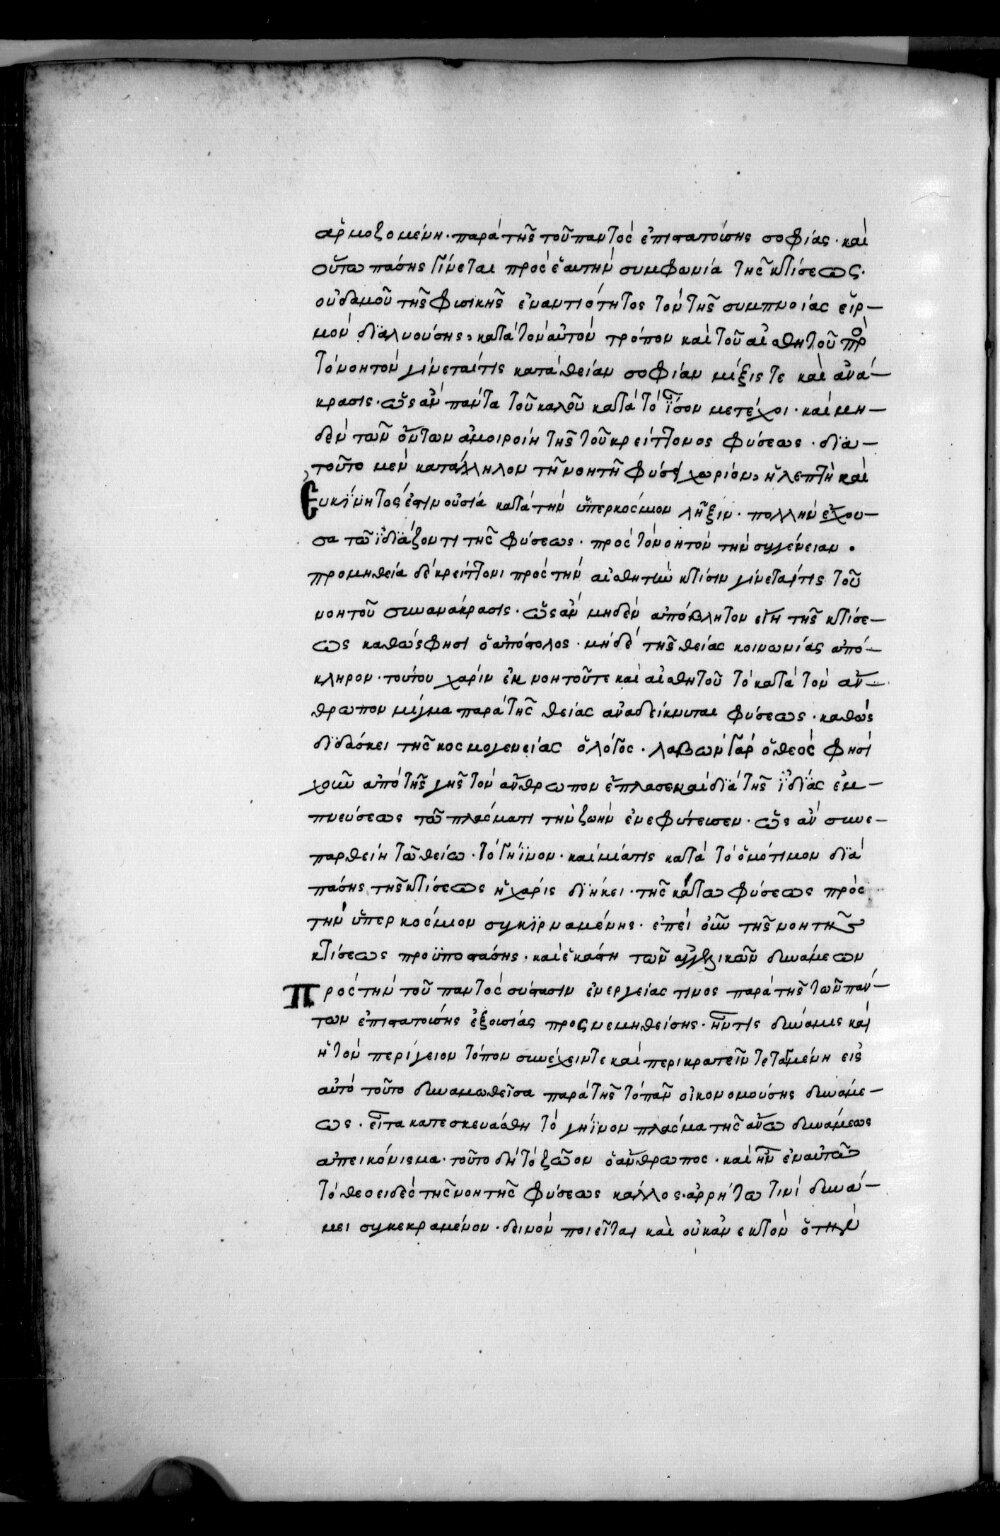 ἁρμοζομένη· παρὰ τῆς τοῦ παντὸς ἐπιστατούσης σοφίας· καὶ
οὕτω πάσης γίνεται πρὸς ἑαυτὴν συμφωνία τῆς κτίσεως·
οὐδαμοῦ τῆς φυσικῆς ἐναντιότητος τὸν τῆς συμπνοίας εἱρ-
μὸν διαλυούσης, κατὰ τὸν αὐτὸν τρόπον καὶ τοῦ αἰσθητοῦ πρὸ
τὸ νοητὸν γίνεταί τις κατὰ θείαν σοφίαν μίξις τε καὶ ἀνά-
κρασις· ὡς ἂν πάντα τοῦ καλοῦ κατὰ τὸ ἴσον μετέχοι· καὶ μη-
δὲν τῶν ὄντων ἀμοιροίη τῆς τοῦ κρείττονος φύσεως· δια-
τοῦτο μὲν κατάλληλον τῇ νοητῇ φύσει χωρίον, ἡ λεπτὴ καὶ
εὐκίνητός ἐστιν οὐσία κατὰ τὴν ὑπερκόσμιον λῆξιν· πολλὴν ἔχου-
σα τῷ ἰδιάζοντι τῆς φύσεως· πρὸς τὸ νοητὸν τὴν συγγένειαν·
προμηθεία δὲ κρείττονι πρὸς τὴν αἰσθητὴν κτίσιν γίνεταί τις τοῦ
νοητοῦ συνανάκρασις· ὡς ἂν μηδὲν ἀπόβλητον εἴη τῆς κτίσε-
ως καθώς φησι ὁ ἀπόστολος· μηδὲ τῆς θείας κοινωνίας ἀπό-
κληρον· τούτου χάριν ἐκ νοητοῦ τε καὶ αἰσθητοῦ τὸ κατὰ τὸν ἄν-
θρωπον μίγμα παρὰ τῆς θείας ἀναδείκνυται φύσεως· καθὼς
διδάσκει τῆς κοσμογενείας ὁ λόγος· λαβὼν γὰρ ὁ θεὸς φησὶ
χοῦν ἀπὸ τῆς γῆς τὸν ἄνθρωπον ἔπλασεν καὶ διὰ τῆς ἰδίας ἐμ-
πνεύσεως τῷ πλάσματι τὴν ζωὴν ἐνεφύτευσεν· ὡς ἂν συνε-
παρθείη τῷ θείῳ· τὸ γήϊνον· καὶ μία τις κατὰ τὸ ὁμότιμον διὰ
πάσης τῆς κτίσεως ἡ χάρις διήκει· τῆς κάτω φύσεως πρὸς
τὴν ὑπερκόσμιον συγκιρναμένης· ἐπεὶ οὖν τῆς νοητῆς
κτίσεως προϋποστάσης· καὶ ἑκάστη τῶν ἀγγελικῶν δυνάμεων
πρὸς τὴν τοῦ παντὸς σύστασιν ἐνεργείας τινος παρὰ τῆς τῶν πάν-
των ἐπιστατούσης ἐξουσίας προσνεμηθείσης· ἦν τις δύναμις καὶ
ἡ τὸν περίγειον τόπον συνέχειν τε καὶ περικρατεῖν τεταγμένη εἰς
αὐτὸ τοῦτο δυναμωθεῖσα παρὰ τῆς τὸ πᾶν οἰκονομούσης δυνάμε-
ως· εἶτα κατεσκευάσθη τὸ γήϊνον πλάσμα τῆς ἄνω δυνάμεως
ἀπεικόνισμα· τοῦτο δὴ τὸ ζῶον ὁ ἄνθρωπος· καὶ ἦν ἐν αὐτῷ
τὸ θεοειδὲς τῆς νοητῆς φύσεως κάλλος· ἀρρήτῳ τινὶ δυνά-
μει συγκεκραμένον· δεινὸν ποιεῖται καὶ οὐκ ἀνεκτὸν